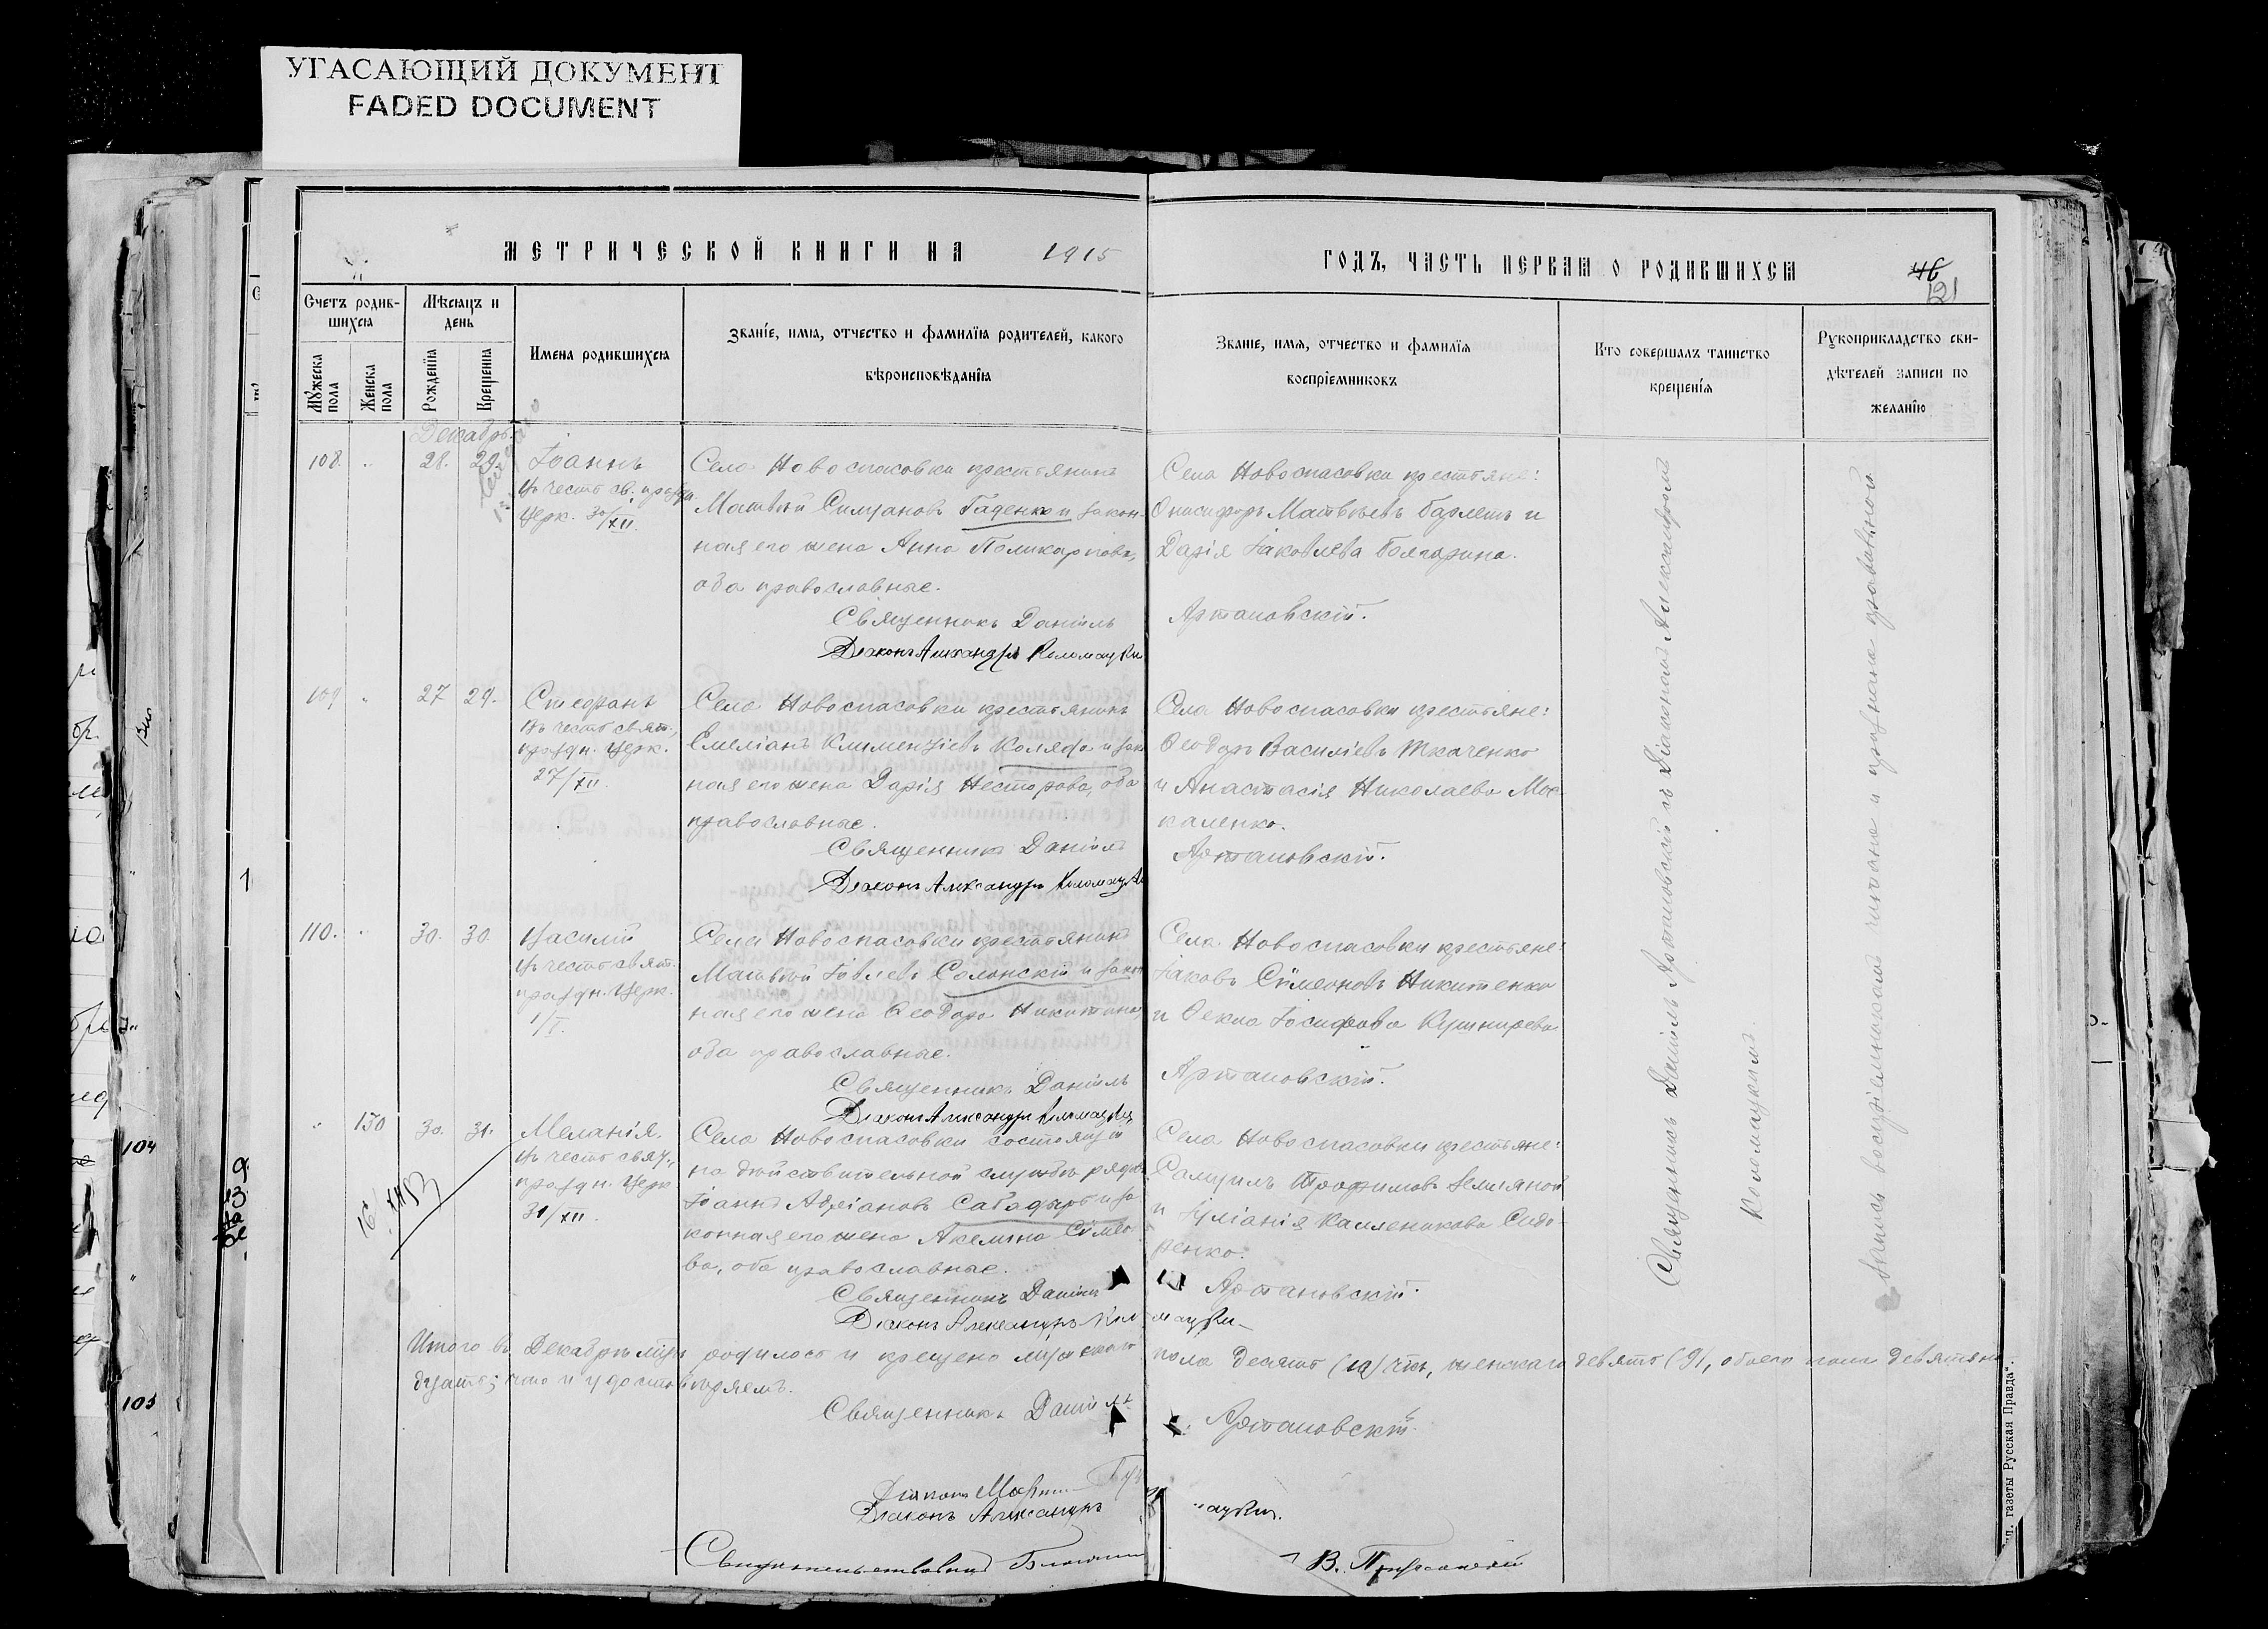 УГАСАЮЩИЙ ДОКУМЕНТ
FADED DOCUMENT
МЕТРИЧЕСКОЙ КНИГИ НА 1915
ГОДЪ, ЧАСТЬ ПЕРВАЯ О РОДИВШИХСЯ
46
121
Счетъ родив-
шихся
Мужеска пола
Женска пола
Мѣсяцъ и
день
Рожденія
Крещенія
Имена родившихся
Званіе, имя, отчество и фамилія родителей, какого
вѣроисповѣданія
Званіе, имя, отчество и фамилія
воспріемниковъ
Кто совершалъ таинство
крещенія
Рукоприкладство сви-
дѣтелей записи по
желанію
Декабрь
108. 28. 29. Іоаннъ
въ честь св. праздн.
Церк. 30/XII.
Села Новоспасовки крестьянинъ
Матвѣй Симяновъ Гаденко и закон-
ная его жена Анна Поликарпова,
оба православные.
Священникъ Даніилъ
Діаконъ Александръ Коломацкій
Села Новоспасовки крестьяне:
Онисифоръ Матвѣевъ Барлетъ и
Дарія Іаковлева Болгарина.
Артановскій.
109 27 29. Стефанъ
Въ честь свят.,
праздн. Церк.
27/XII.
Села Новоспасовки крестьянинъ
Емеліанъ Климентіевъ Коляда и зако
ная его жена Дарія Несторова, оба
православные.
Священникъ Даніилъ
Діаконъ Александръ Коломацкій
Села Новоспасовки крестьяне:
Ѳеодоръ Василіевъ Ткаченко
и Анастасія Николаева Мос
каленко.
Артановскій.
110. 30. 30. Василій
Въ честь свят.
праздн. Церк.
1/I.
Села Новоспасовки крестьянинъ
Матвѣй Іовлевъ Солонскій и закон
ная его жена Ѳеодора Никитина,
оба православные.
Священникъ Даніилъ
Діаконъ Александръ Коломацкій
Села Новоспасовки крестьяне:
Іаковъ Сѵмеоновъ Никитенко
и Ѳекла Іосифова Кушнирева
Артановскій.
130 30. 31. Меланія.
Въ честь свят.,
праздн. Церк.
31/XII.
Села Новоспасовки состоящій
на дѣйствительной службѣ рядов
Іоаннъ Адріановъ Сагадаръ и за
конная его жена Акелина Сѵмео
ва, оба православные.
Священникъ Даніилъ
Діаконъ Александръ Коло
Села Новоспасовки крестьяне:
Самуилъ Трофимовъ Земляной
и Іуліанія Каллиникова Сидо-
ренко.
Артановскій.
мацкій
Священникъ Даніилъ Артановскій съ Діакономъ Александромъ
Коломацкимъ.
Запись воспріемникамъ читана и признана правильной
Итого въ Декабрѣ мѣс. родилось и крещено мужеского пола десять (10) чел., женскаго девять (9), обоего пола девятна
дцать; что и удостовѣряемъ.
Священникъ Даніилъ Артановскій.
Діаконъ
Діаконъ Александръ
ацкій.
Свидѣтельствовалъ
В.
104
105
ип. газеты Русская Правда".